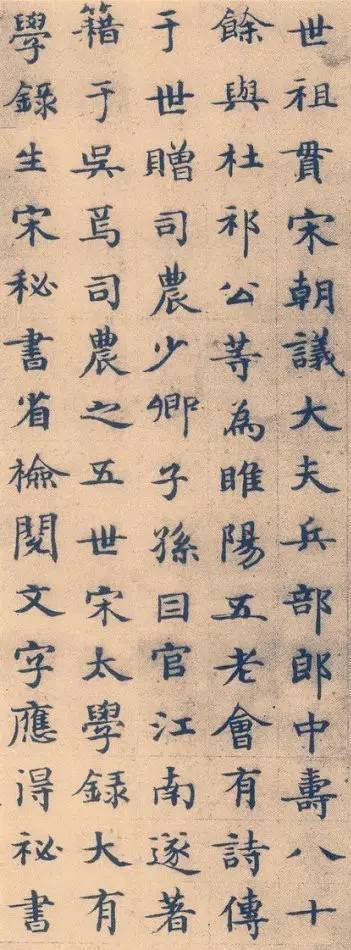 世祖貫宋朝議大夫兵部郎中壽八十
餘與杜祁公等為睢陽五老會有詩傳
于世贈司農少卿子孫囙官江南遂著
籍于吳焉司農之五世宋太學録大有
學録生宋秘書省檢閱文字應淂祕書